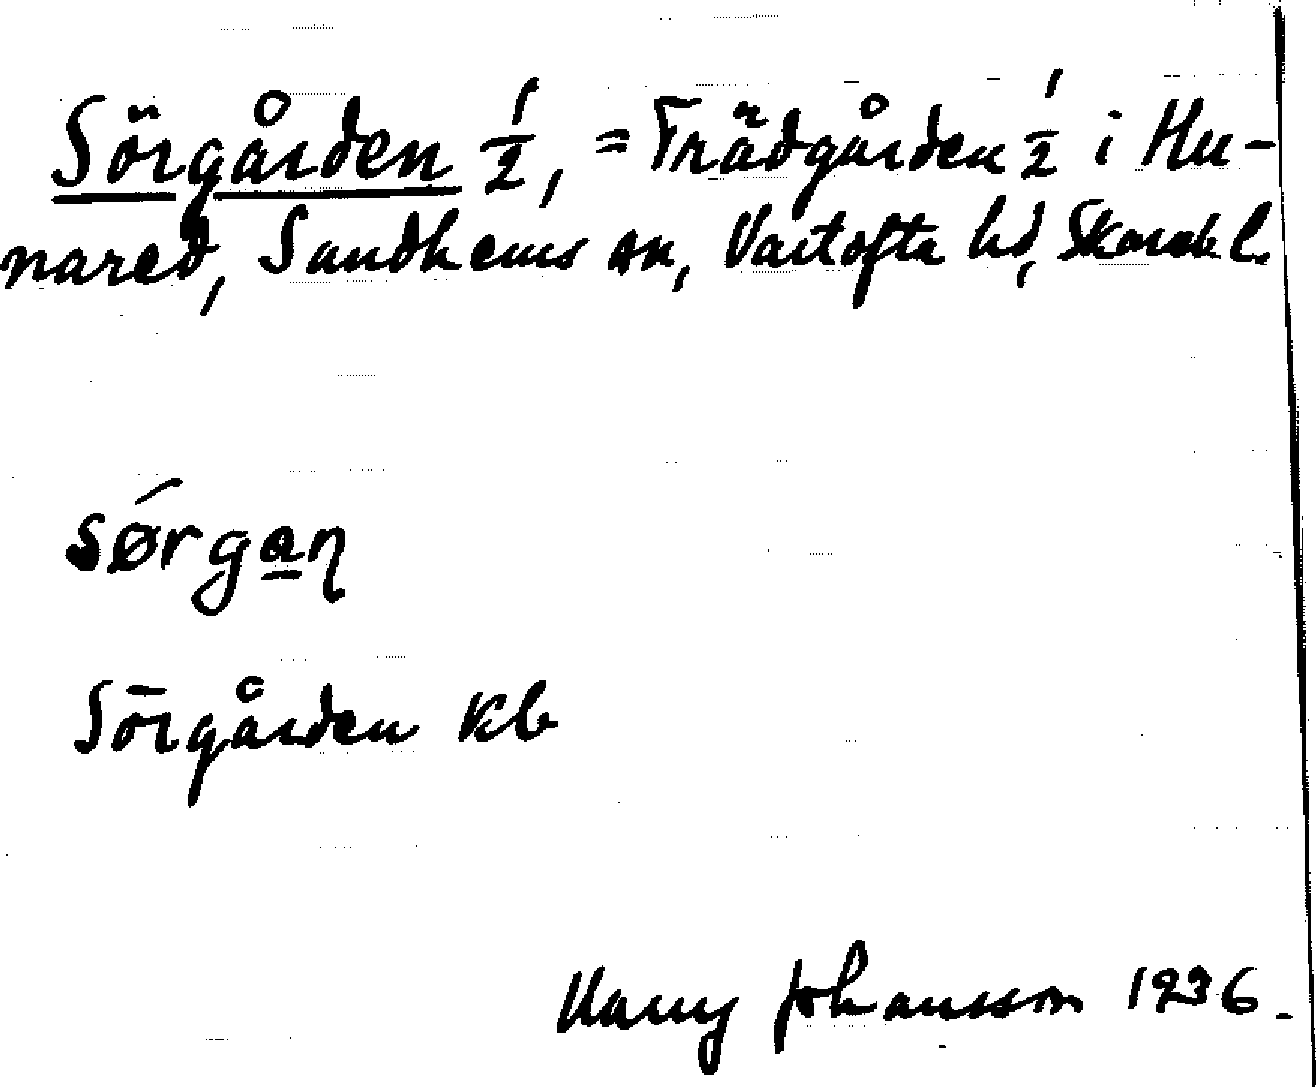 Sörgården 1/2, = Trädgården 1/2 i Hu-
nared, Sandhems sn, Vartofta hd, Skarab. l.
sørgaŋ
Sörgården kb
Harry Johansson 1936.